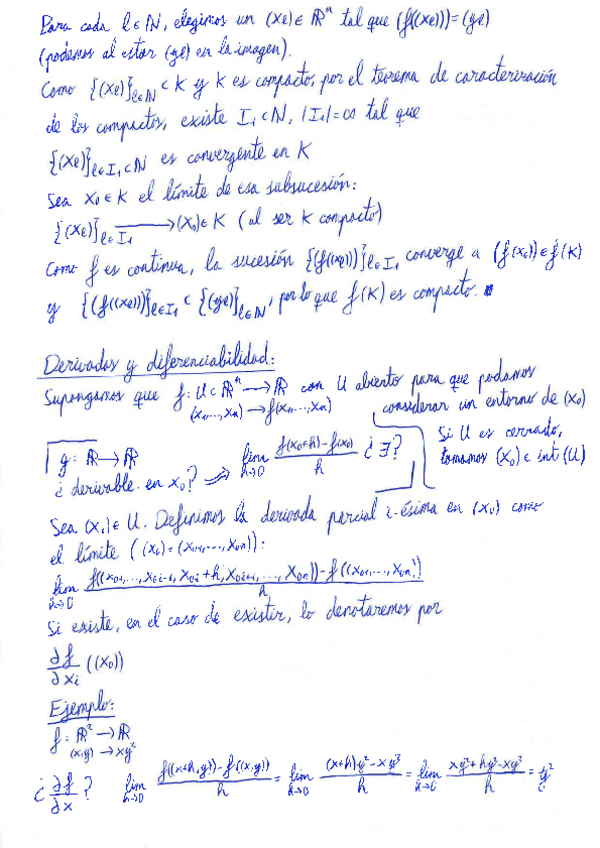 Para cada l∈ℕ, elegimos un (xe)∈ℝⁿ tal que (f((xe)))=(ye)
(podemos al estar (ye) en la imagen).
Como {(xe)}ₗ∈ℕ ⊂ K y K es compacto, por el teorema de caracterización
de los compactos, existe I₁⊂ℕ, |I₁|=∞ tal que
{(xe)}ₗ∈I₁⊂ℕ es convergente en K
Sea x₀∈K el límite de esa subsucesión:
{(xe)}ₗ∈I₁ ⟶ (x₀)∈K (al ser K compacto)
Como f es continua, la sucesión {(f((xe)))}ₗ∈I₁ converge a (f(x₀))∈f(K)
y {(f((xe)))}ₗ∈I₁ ⊂ {(ye)}ₗ∈ℕ, por lo que f(K) es compacto. ■
Derivadas y diferenciabilidad:
Supongamos que f: U⊂ℝⁿ ⟶ ℝ con U abierto para que podamos
(x₁,...,xₙ) → f(x₁,...,xₙ) considerar un entorno de (x₀)
Si U es cerrado,
tomamos (x₀)∈ int(U)
g: ℝ ⟶ ℝ
¿derivable en x₀? ⇝ lim h→0 (f(x₀+h)-f(x₀))/h ¿∃?
Sea (x₀)∈U. Definimos la derivada parcial i-ésima en (x₀) como
el límite ((x₀)=(x₀₁,...,x₀ₙ)):
lim h→0 (f((x₀₁,...,x₀ᵢ₋₁,x₀ᵢ+h,x₀ᵢ₊₁,...,x₀ₙ))-f((x₀₁,...,x₀ₙ)))/h
Si existe, en el caso de existir, lo denotaremos por
∂f/∂xᵢ ((x₀))
Ejemplo:
f: ℝ² → ℝ
(x,y) → xy²
¿∂f/∂x? lim h→0 (f((x+h,y))-f((x,y)))/h = lim h→0 ((x+h)y²-xy²)/h = lim h→0 (xy²+hy²-xy²)/h = y²